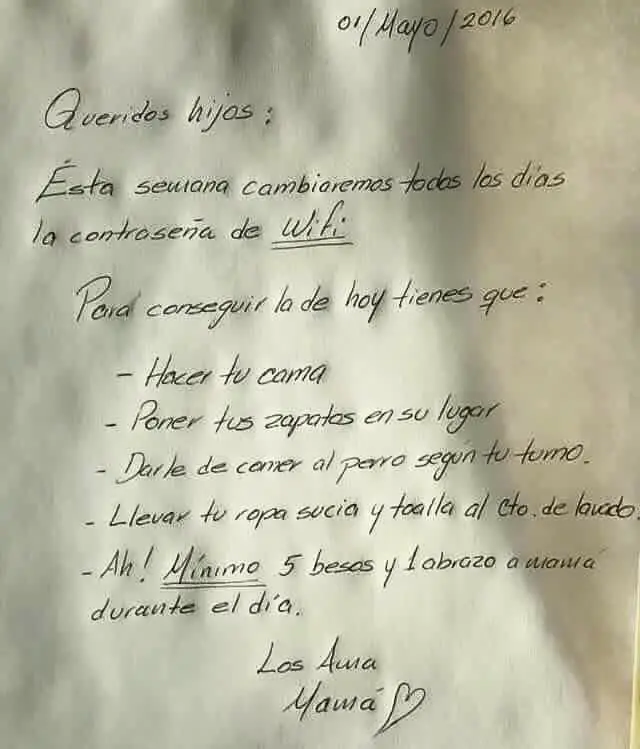 01/Mayo/2016
Queridos hijos:
Ésta semana cambiaremos todos los días
la contraseña de Wifi.
Para conseguir la de hoy tienes que:
- Hacer tu cama
- Poner tus zapatos en su lugar
- Darle de comer al perro según tu turno.
- Llevar tu ropa sucia y toalla al cto. de lavado.
- Ah! Mínimo 5 besos y 1 abrazo a mamá
durante el día.
Los Ama
Mamá